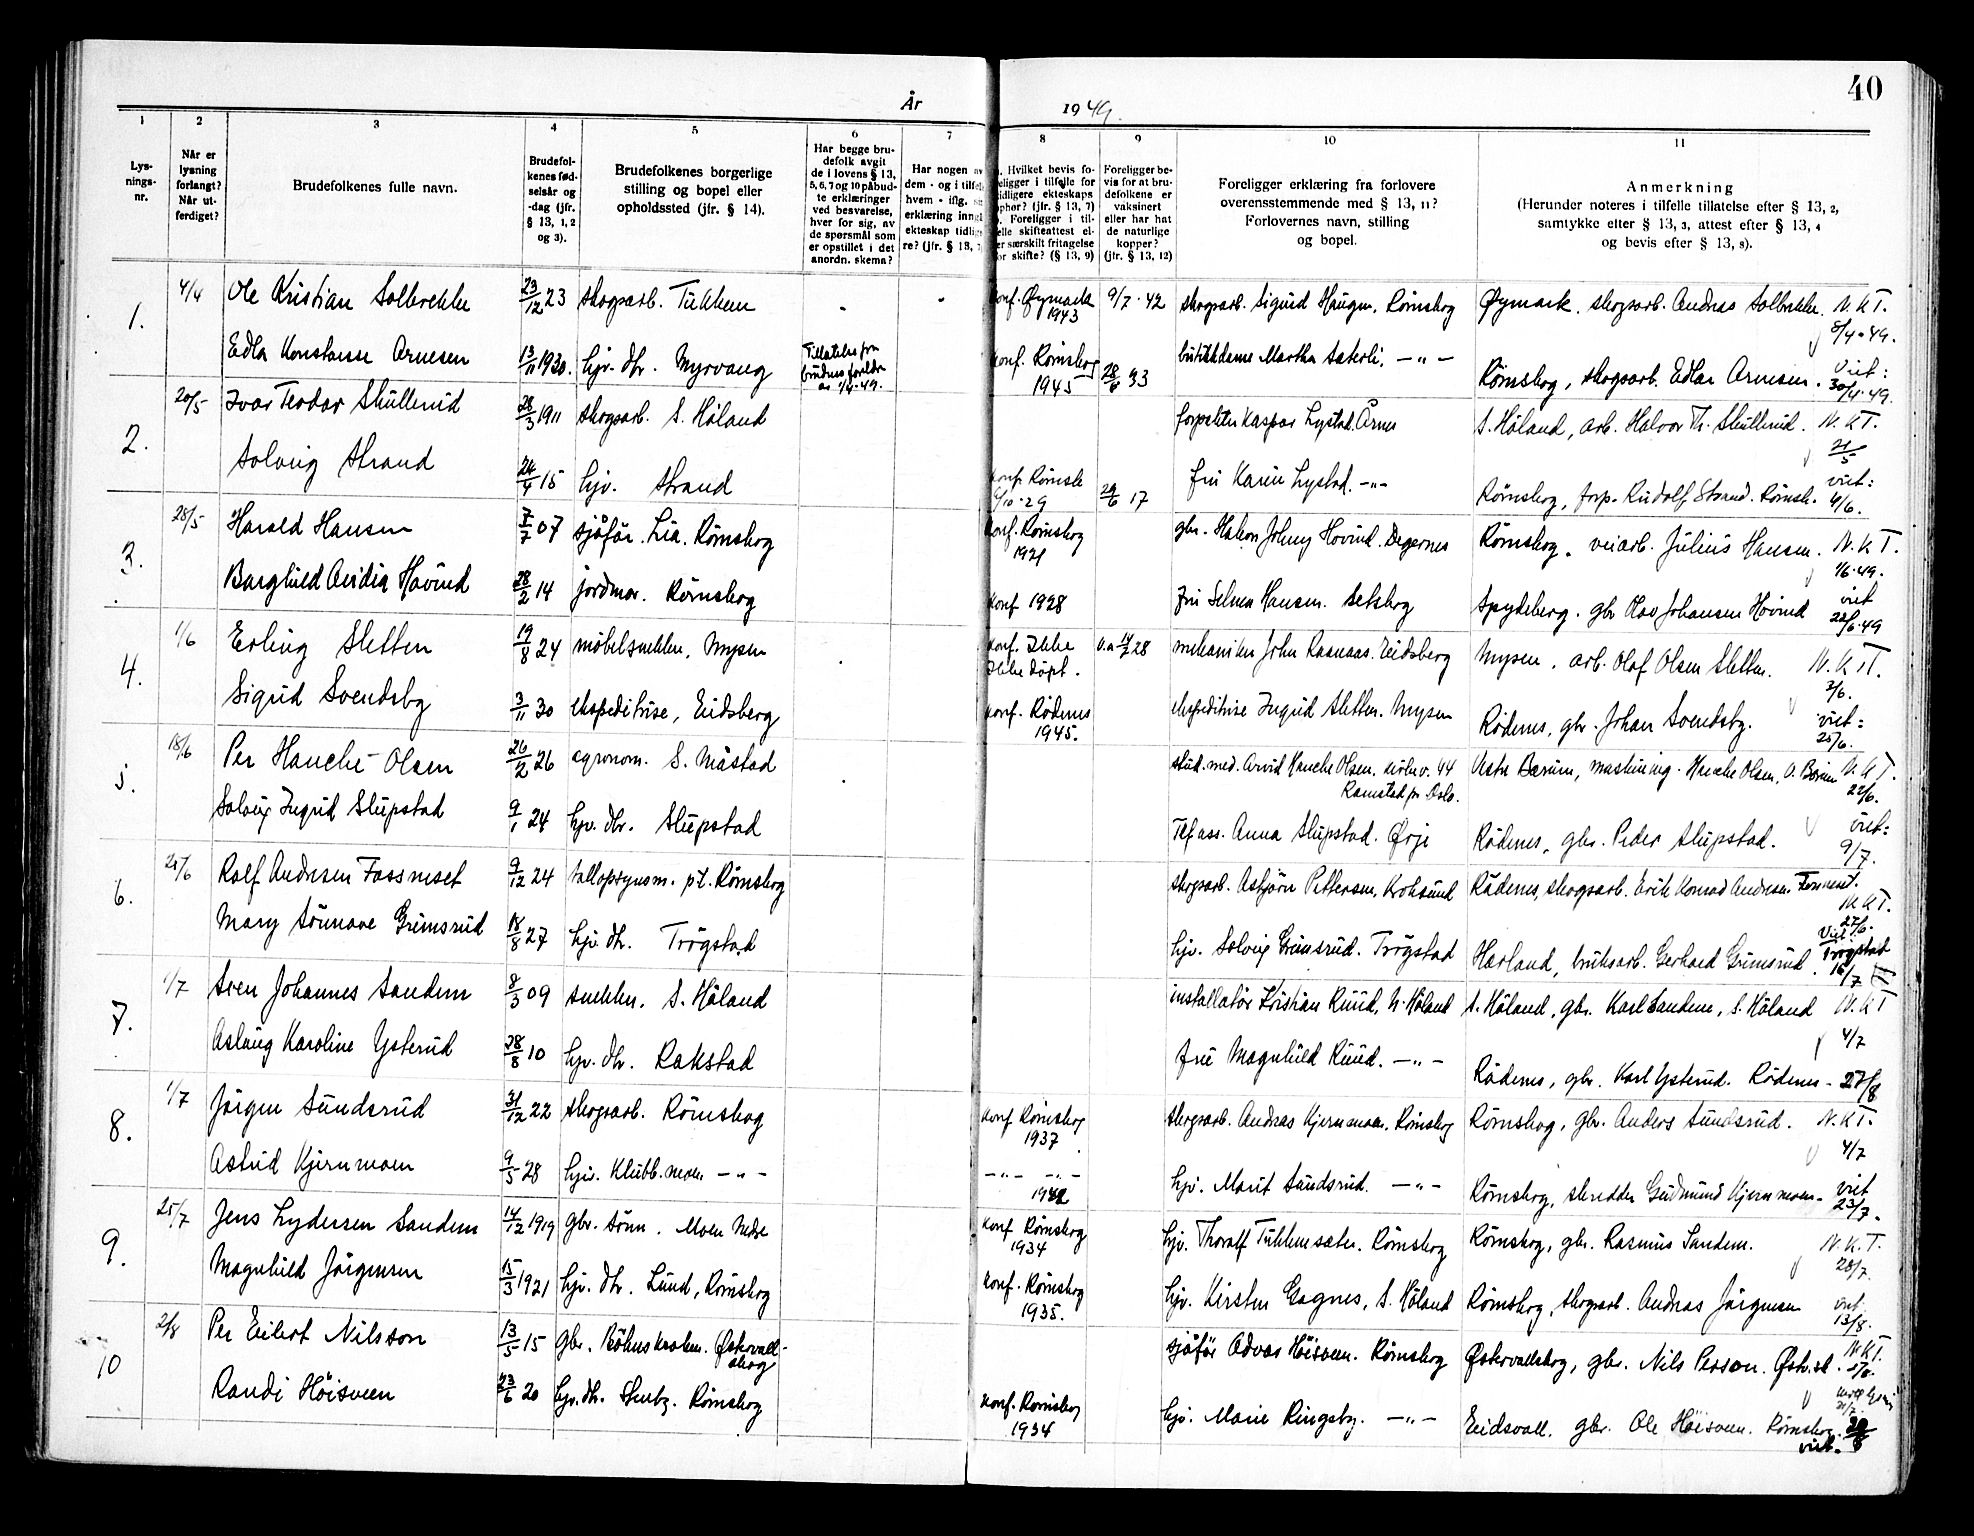 40
År 1949.
1 2 3 4 5 6 7 8 9 10 11
Lys-
nings-
nr.
Når er
lysning
forlangt?
Når ut-
ferdiget?
Brudefolkenes fulle navn.
Brudefol-
kenes fød-
selsår og
-dag (jfr.
§ 13, 1, 2
og 3).
Brudefolkenes borgerlige
stilling og bopel eller
opholdssted (jfr. § 14).
Har begge bru-
defolk avgit
de i lovens § 13,
5, 6, 7 og 10 påbud-
te erklæringer
ved besvarelse,
hver for sig, av
de spørsmål som
er opstillet i det
anordn. skema?
Har nogen av
dem - og i tilfelle
hvem - iflg. sin
erklæring inngått
ekteskap tidlige-
re? (jfr. § 13, 7
Hvilket bevis fo-
religger i tilfelle for
tidligere ekteskaps
ophør? (jfr. § 13, 7)
Foreligger i til-
felle skifteattest el-
ler særskilt fritagelse
for skifte? (§ 13, 9)
Foreligger be-
vis for at bru-
defolkene er
vaksinert
eller har hat
de naturlige
kopper?
(jfr. § 13, 12)
Foreligger erklæring fra forlovere
overensstemmende med § 13, 11?
Forlovernes navn, stilling
og bopel.
Anmerkning
(Herunder noteres i tilfelle tillatelse efter § 13, 2,
samtykke efter § 13, 3, attest efter § 13, 4
og bevis efter § 13, 8).
1. 4/4 Ole Kristian Solbrekke 23/12 23 skogsarb. Tukkun konf. Øymark 1943 9/7-42 skogsarb. Sigurd Haugen, Rømskog Øymark. skogsarb. Andreas Solbrekke. N.K.T. 8/4-49.
Edla Konstanse Arnesen 13/11 1930. hjv. dtr. Myrvang Tillatelse fra brudens foreldre av 1/4-49. konf. Rømskog 1945 28/6 33 butikkdame Martha Sæterli. —"— Rømskog, skogsarb. Edlar Arnesen. Viet: 30/4-49.
2. 20/5 Ivar Teodor Skullerud 28/3 1911 skogsarb. S. Høland forpakter Kaspar Lystad. Årnes S. Høland, arb. Halvor Th. Skullerud. N.K.T. 21/5
Solveig Strand 24/4 15 hjv. Strand konf. Rømsk 6/10-29 29/6 17 fru Karin Lystad. —"— Rømskog, forp. Rudolf Strand. Rømsk. viet: 4/6.
3. 28/5 Harald Hansen 7/7 07 sjåfør. Lia. Rømskog konf. Rømskog 1921 gbr. Håkon Johny Hovind. Degernes Rømskog. veiarb. Julius Hansen. N.K.T. 1/6-49.
Borghild Avidia Hovind 28/2 14 jordmor. Rømskog konf 1928 Fru Selma Hansen. Setskog Spydeberg. gbr Olav Johansen Hovind viet 22/6-49
4. 1/6 Erling Sletten 19/8 24 møbelsnekker, Mysen konf. Ikke Ikke døpt. v.a 14/7 28 mekaniker John Raanaas. Eidsberg Mysen. arb. Olaf Olsen Sletten. N.K.T. 2/6.
Sigrid Svendsby 3/11 30 ekspeditrise, Eidsberg konf. Rødenes 1945. ekspeditrise Ingrid Sletten. Mysen Rødenes, gbr. Johan Svendsby. viet: 25/6.
5. 18/6 Per Hanche-Olsen 26/2 26 agronom. S. Måstad stud. med. Arvid Hanche Olsen, Kirkev. 44 Ramstad pr Oslo. Vestre Bærum, maskining. Hanche Olsen, V. Bærum N.K.T. 22/6.
Solveig Ingrid Slupstad 9/1 24 hjv. dtr. Slupstad Tlf ass. Anna Slupstad. Ørje Rødenes, gbr. Peder Slupstad. viet: 9/7.
6. 25/6 Rolf Andresen Fossneset 9/12 24 talloppsynsm. p.t. Rømskog skogsarb. Asbjørn Pettersen, Kroksund Rødenes, skogsarb. Erik Konrad Andresen Fossneset. N.K.T. 27/6.
Mary Sunnøve Grimsrud 18/8 27 hjv. dtr. Trøgstad hjv. Solveig Grimsrud. Trøgstad Hærland, bruksarb. Gerhard Grimsrud. Viet Trøgstad 16/7
7. 1/7 Sven Johannes Sandem 8/3 09 snekker. S. Høland installatør Kristian Ruud, N. Høland S. Høland, gbr. Karl Sandem, S. Høland N.K.T 4/7
Aslaug Karoline Ysterud 28/8 10 hjv. dtr. Rakstad fru Magnhild Ruud. —"— Rødenes, gbr. Karl Ysterud. Rødenes - 27/8
8. 1/7 Jørgen Sundsrud 31/12 22 skogsarb. Rømskog konf Rømskog 1937 skogsarb. Andreas Kjernmoen, Rømskog Rømskog, gbr. Anders Sundsrud. N.K.T. 4/7
Astrid Kjernmoen 9/5 28 hjv. Klubb.moen —"— —"— —"— 1942 hjv. Marit Sundsrud. —"— Rømskog, skredder Gudmund Kjernmoen - viet 23/7.
9. 25/7 Jens Lydersen Sandem 14/12 1919 gbr. sønn. Moen Nedre konf Rømskog 1934 hjv. Thoralf Tukkensæter. Rømskog Rømskog, gbr. Rasmus Sandem. N.K.T. 28/7.
Magnhild Jørgensen 15/3 1921 hjv. dtr. Lund, Rømskog konf. Rømskog 1935. hjv. Kirsten Gagnes, S. Høland Rømskog, skogsarb. Andreas Jørgensen viet 13/8.
10 2/8 Per Eilert Nilsson 13/5 15 gbr. Bøhnskroken. Østervall-skog sjåfør Advar Høisveen. Rømskog Østervallskog, gbr. Nils Persson. Østv.sk. N.K.T.
Randi Høisveen 23/6 20 hjv. dtr. Stuby. Rømskog konf. Rømskog 1934 hjv. Marie Ringsby. —"— Eidsvoll. gbr. Ole Høisveen. Rømskog. viet.